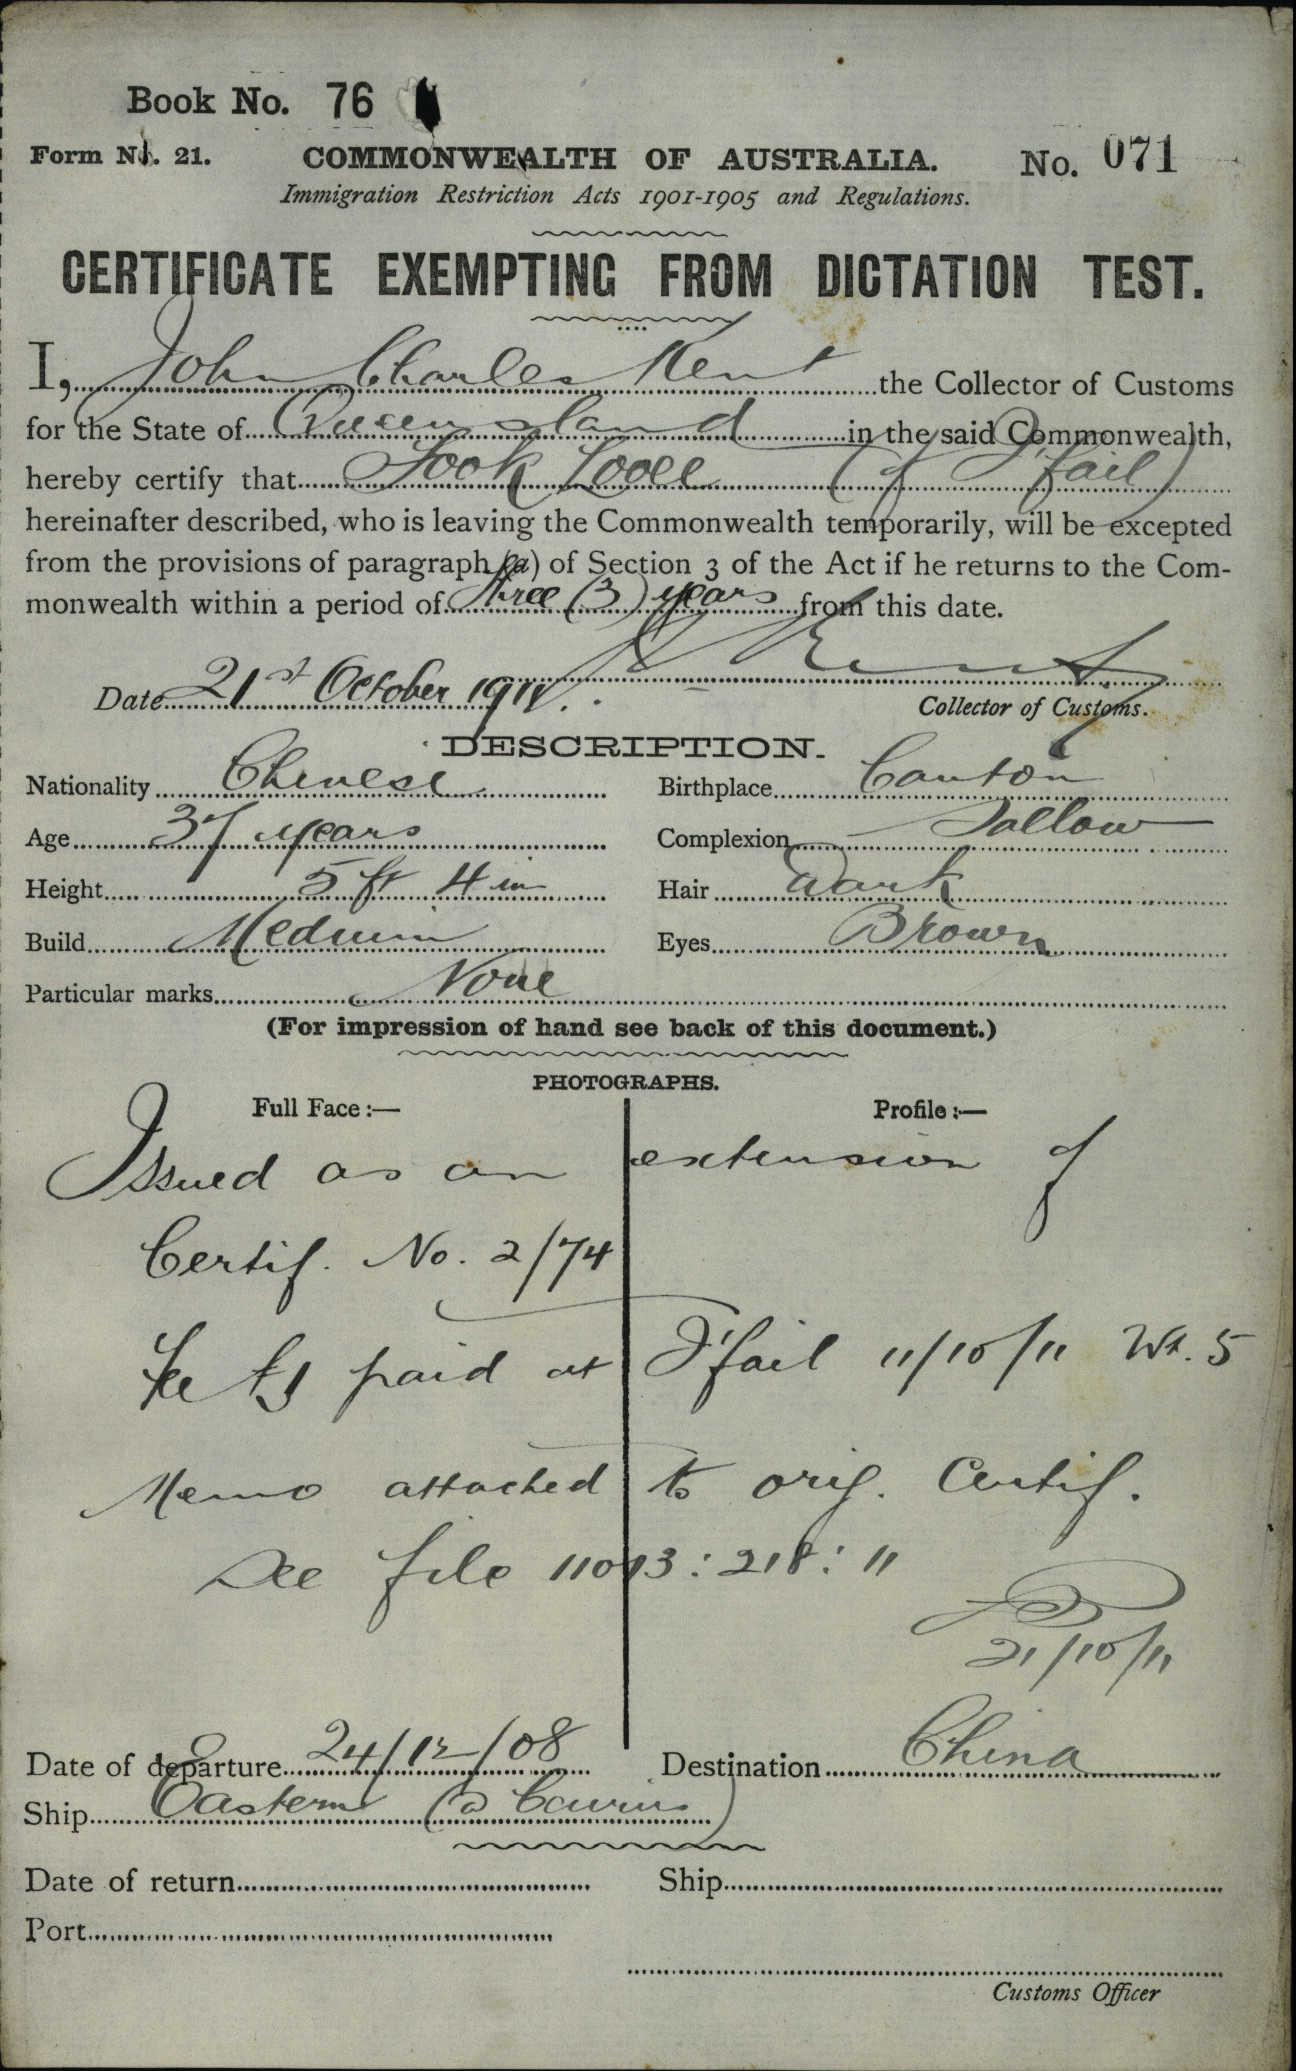 Book No. 76
Form No. 21. COMMONWEALTH OF AUSTRALIA. No. 071
Immigration Restriction Acts 1901-1905 and Regulations.
CERTIFICATE EXEMPTING FROM DICTATION TEST.
I, John Charles Kent the Collector of Customs
for the State of Queensland in the said Commonwealth,
hereby certify that Sook Looee (of I'fail)
hereinafter described, who is leaving the Commonwealth temporarily, will be excepted
from the provisions of paragraph (a) of Section 3 of the Act if he returns to the Com-
monwealth within a period of three (3) years from this date.
Date 21st October 1911. Kent
Collector of Customs.
DESCRIPTION.
Nationality Chinese Birthplace Canton
Age 37 years Complexion Sallow
Height 5 ft 4 in Hair Dark
Build Medium Eyes Brown
Particular marks None
(For impression of hand see back of this document.)
PHOTOGRAPHS.
Full Face:— Profile:—
Issued as an extension of
Certif. No. 2/74
Fee £1 paid at I'fail 11/10/11 5
Memo attached to orig. Certif.
See file 11093:218:11
21/10/11
Date of departure 24/12/08 Destination China
Ship Eastern (@ Cairns)
Date of return Ship
Port
Customs Officer